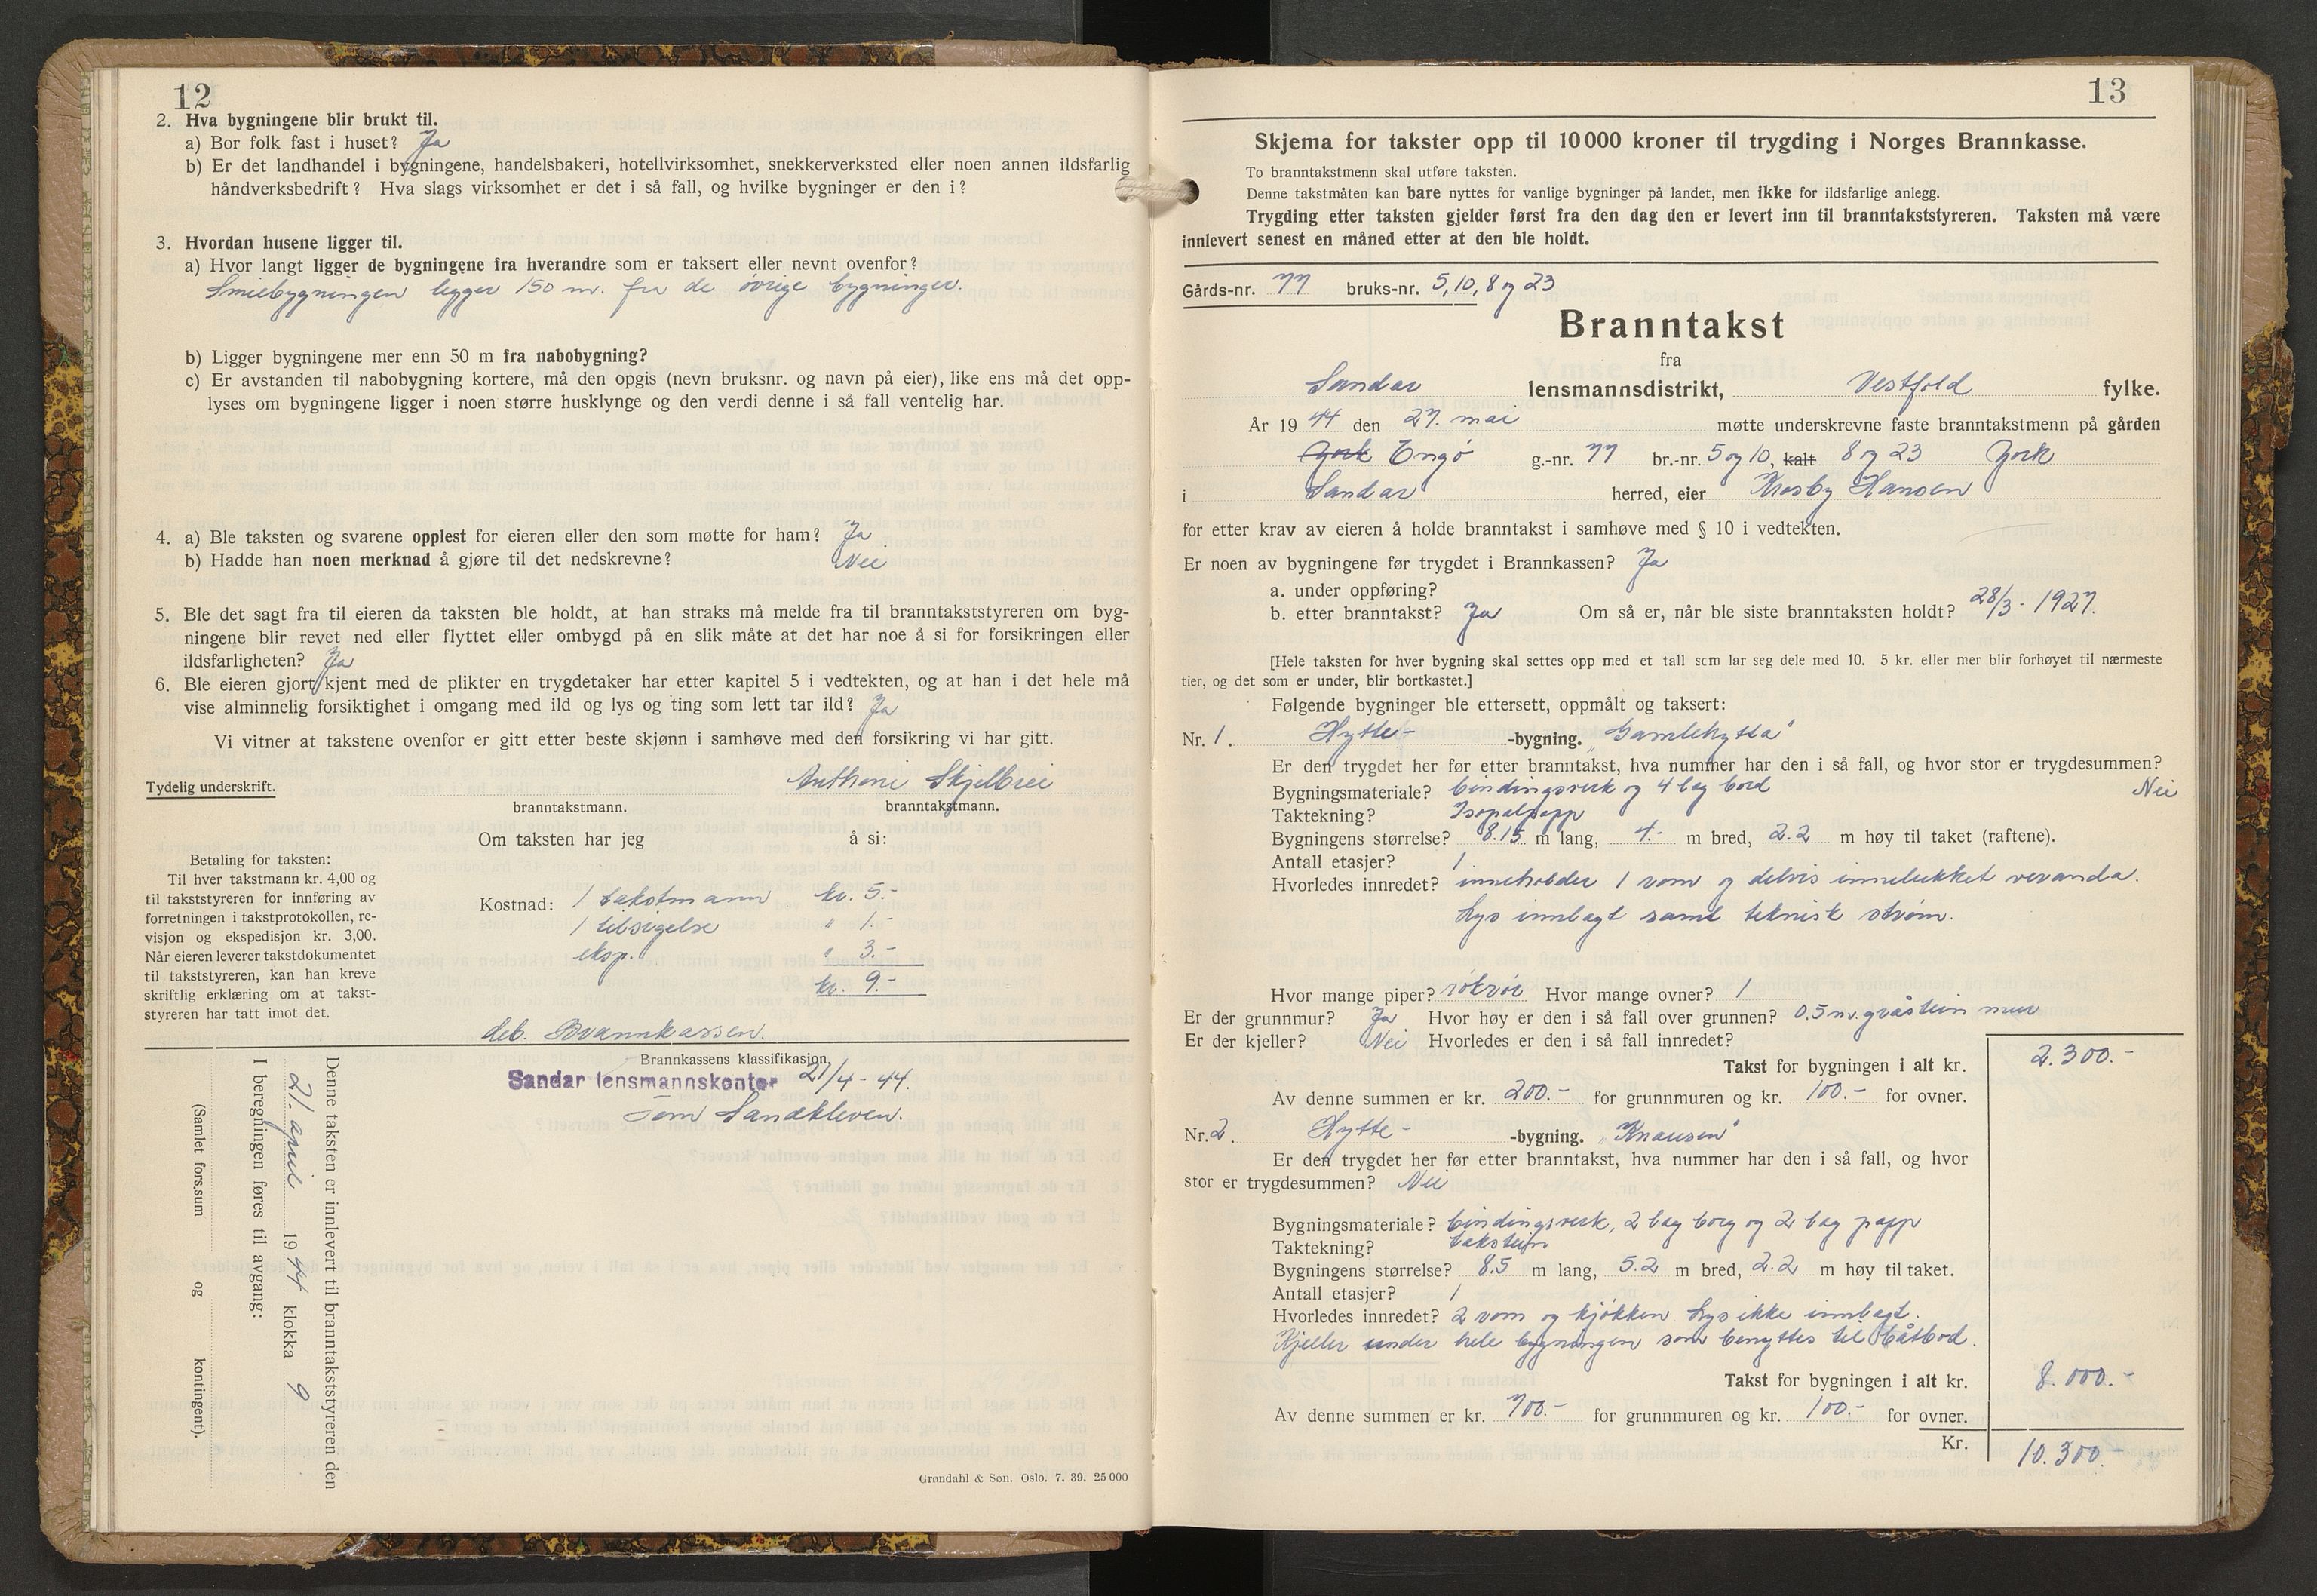 12
2. Hva bygningene blir brukt til.
a) Bor folk fast i huset? Ja
b) Er det landhandel i bygningene, handelsbakeri, hotellvirksomhet, snekkerverksted eller noen annen ildsfarlig
håndverksbedrift? Hva slags virksomhet er det i så fall, og hvilke bygninger er den i?
3. Hvordan husene ligger til.
a) Hvor langt ligger de bygningene fra hverandre som er taksert eller nevnt ovenfor?
Smiebygningen ligger 150 m. fra de övrige bygninger.
b) Ligger bygningene mer enn 50 m fra nabobygning?
c) Er avstanden til nabobygning kortere, må den opgis (nevn bruksnr. og navn på eier), like ens må det opp-
lyses om bygningene ligger i noen større husklynge og den verdi denne i så fall ventelig har.
4. a) Ble taksten og svarene opplest for eieren eller den som møtte for ham? Ja
b) Hadde han noen merknad å gjøre til det nedskrevne? Nei
5. Ble det sagt fra til eieren da taksten ble holdt, at han straks må melde fra til branntakststyreren om byg-
ningene blir revet ned eller flyttet eller ombygd på en slik måte at det har noe å si for forsikringen eller
ildsfarligheten? Ja
6. Ble eieren gjort kjent med de plikter en trygdetaker har etter kapitel 5 i vedtekten, og at han i det hele må
vise alminnelig forsiktighet i omgang med ild og lys og ting som lett tar ild? Ja
Vi vitner at takstene ovenfor er gitt etter beste skjønn i samhøve med den forsikring vi har gitt.
Tydelig underskrift. Anthoni Skjelbrei
branntakstmann. branntakstmann.
Om taksten har jeg å si:
Betaling for taksten:
Til hver takstmann kr. 4,00 og
til takststyreren for innføring av
forretningen i takstprotokollen, re-
visjon og ekspedisjon kr. 3,00.
Når eieren leverer takstdokumentet
til takststyreren, kan han kreve
skriftlig erklæring om at takst-
styreren har tatt imot det.
Kostnad: 1 takstmann kr. 5.-
1 tilsigelse " 1.-
eksp. " 3.-
kr. 9.-
deb. Brannkassen.
Brannkassens klassifikasjon.
Sandar lensmannskontor 21/4-44.
Tom Sandkleven.
Denne taksten er innlevert til branntakststyreren den
21. april 1944 klokka 9
I beregningen føres til avgang:
(Samlet fors.sum og kontingent).
Grøndahl & Søn. Oslo. 7. 39. 25 000
13
Skjema for takster opp til 10 000 kroner til trygding i Norges Brannkasse.
To branntakstmenn skal utføre taksten.
Denne takstmåten kan bare nyttes for vanlige bygninger på landet, men ikke for ildsfarlige anlegg.
Trygding etter taksten gjelder først fra den dag den er levert inn til branntakststyreren. Taksten må være
innlevert senest en måned etter at den ble holdt.
Gårds-nr. 77 bruks-nr. 5, 10, 8 og 23
Branntakst
fra
Sandar lensmannsdistrikt, Vestfold fylke.
År 1944 den 27. mai møtte underskrevne faste branntakstmenn på gården
York Engö g.-nr. 77 br.-nr. 5 og 10, kalt 8 og 23 York
i Sandar herred, eier Krosby Hansen
for etter krav av eieren å holde branntakst i samhøve med § 10 i vedtekten.
Er noen av bygningene før trygdet i Brannkassen? Ja
a. under oppføring?
b. etter branntakst? Ja Om så er, når ble siste branntaksten holdt? 28/3-1927.
[Hele taksten for hver bygning skal settes opp med et tall som lar seg dele med 10. 5 kr. eller mer blir forhøyet til nærmeste
tier, og det som er under, blir bortkastet.]
Følgende bygninger ble ettersett, oppmålt og taksert:
Nr. 1. Hytte- -bygning. "Gamlehytta"
Er den trygdet her før etter branntakst, hva nummer har den i så fall, og hvor stor er trygdesummen?
Nei
Bygningsmateriale? bindingsverk og 4 lag bord
Taktekning? Isopalpapp
Bygningens størrelse? 8.15 m lang, 4.- m bred, 2.2 m høy til taket (raftene).
Antall etasjer? 1.
Hvorledes innredet? inneholder 1 rom og delvis innelukket veranda.
Lys innlagt samt teknisk ström.
Hvor mange piper? rökrör Hvor mange ovner? 1
Er der grunnmur? Ja Hvor høy er den i så fall over grunnen? 0.5 m. gråstein mur
Er der kjeller? Nei Hvorledes er den i så fall innredet?
Takst for bygningen i alt kr. 2.300.-
Av denne summen er kr. 200.- for grunnmuren og kr. 100.- for ovner.
Nr. 2. Hytte- -bygning. "Knausen"
Er den trygdet her før etter branntakst, hva nummer har den i så fall, og hvor
stor er trygdesummen? Nei
Bygningsmateriale? bindingsverk, 2 lag borg og 2 lag papp
Taktekning? takstein
Bygningens størrelse? 8.5 m lang, 5.2 m bred, 2.2 m høy til taket.
Antall etasjer? 1
Hvorledes innredet? 2 rom og kjökken Lys ikke innlagt.
Kjeller under hele bygningen som benyttes til båtbod.
Takst for bygningen i alt kr. 8.000.-
Av denne summen er kr. 700.- for grunnmuren og kr. 100.- for ovner.
Kr. 10.300.-